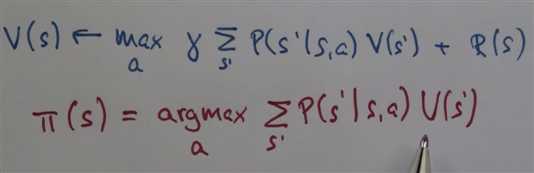 V(s) ← max_a γ Σ_s' P(s'|s,a) V(s') + R(s)
π(s) = argmax_a Σ_s' P(s'|s,a) V(s')